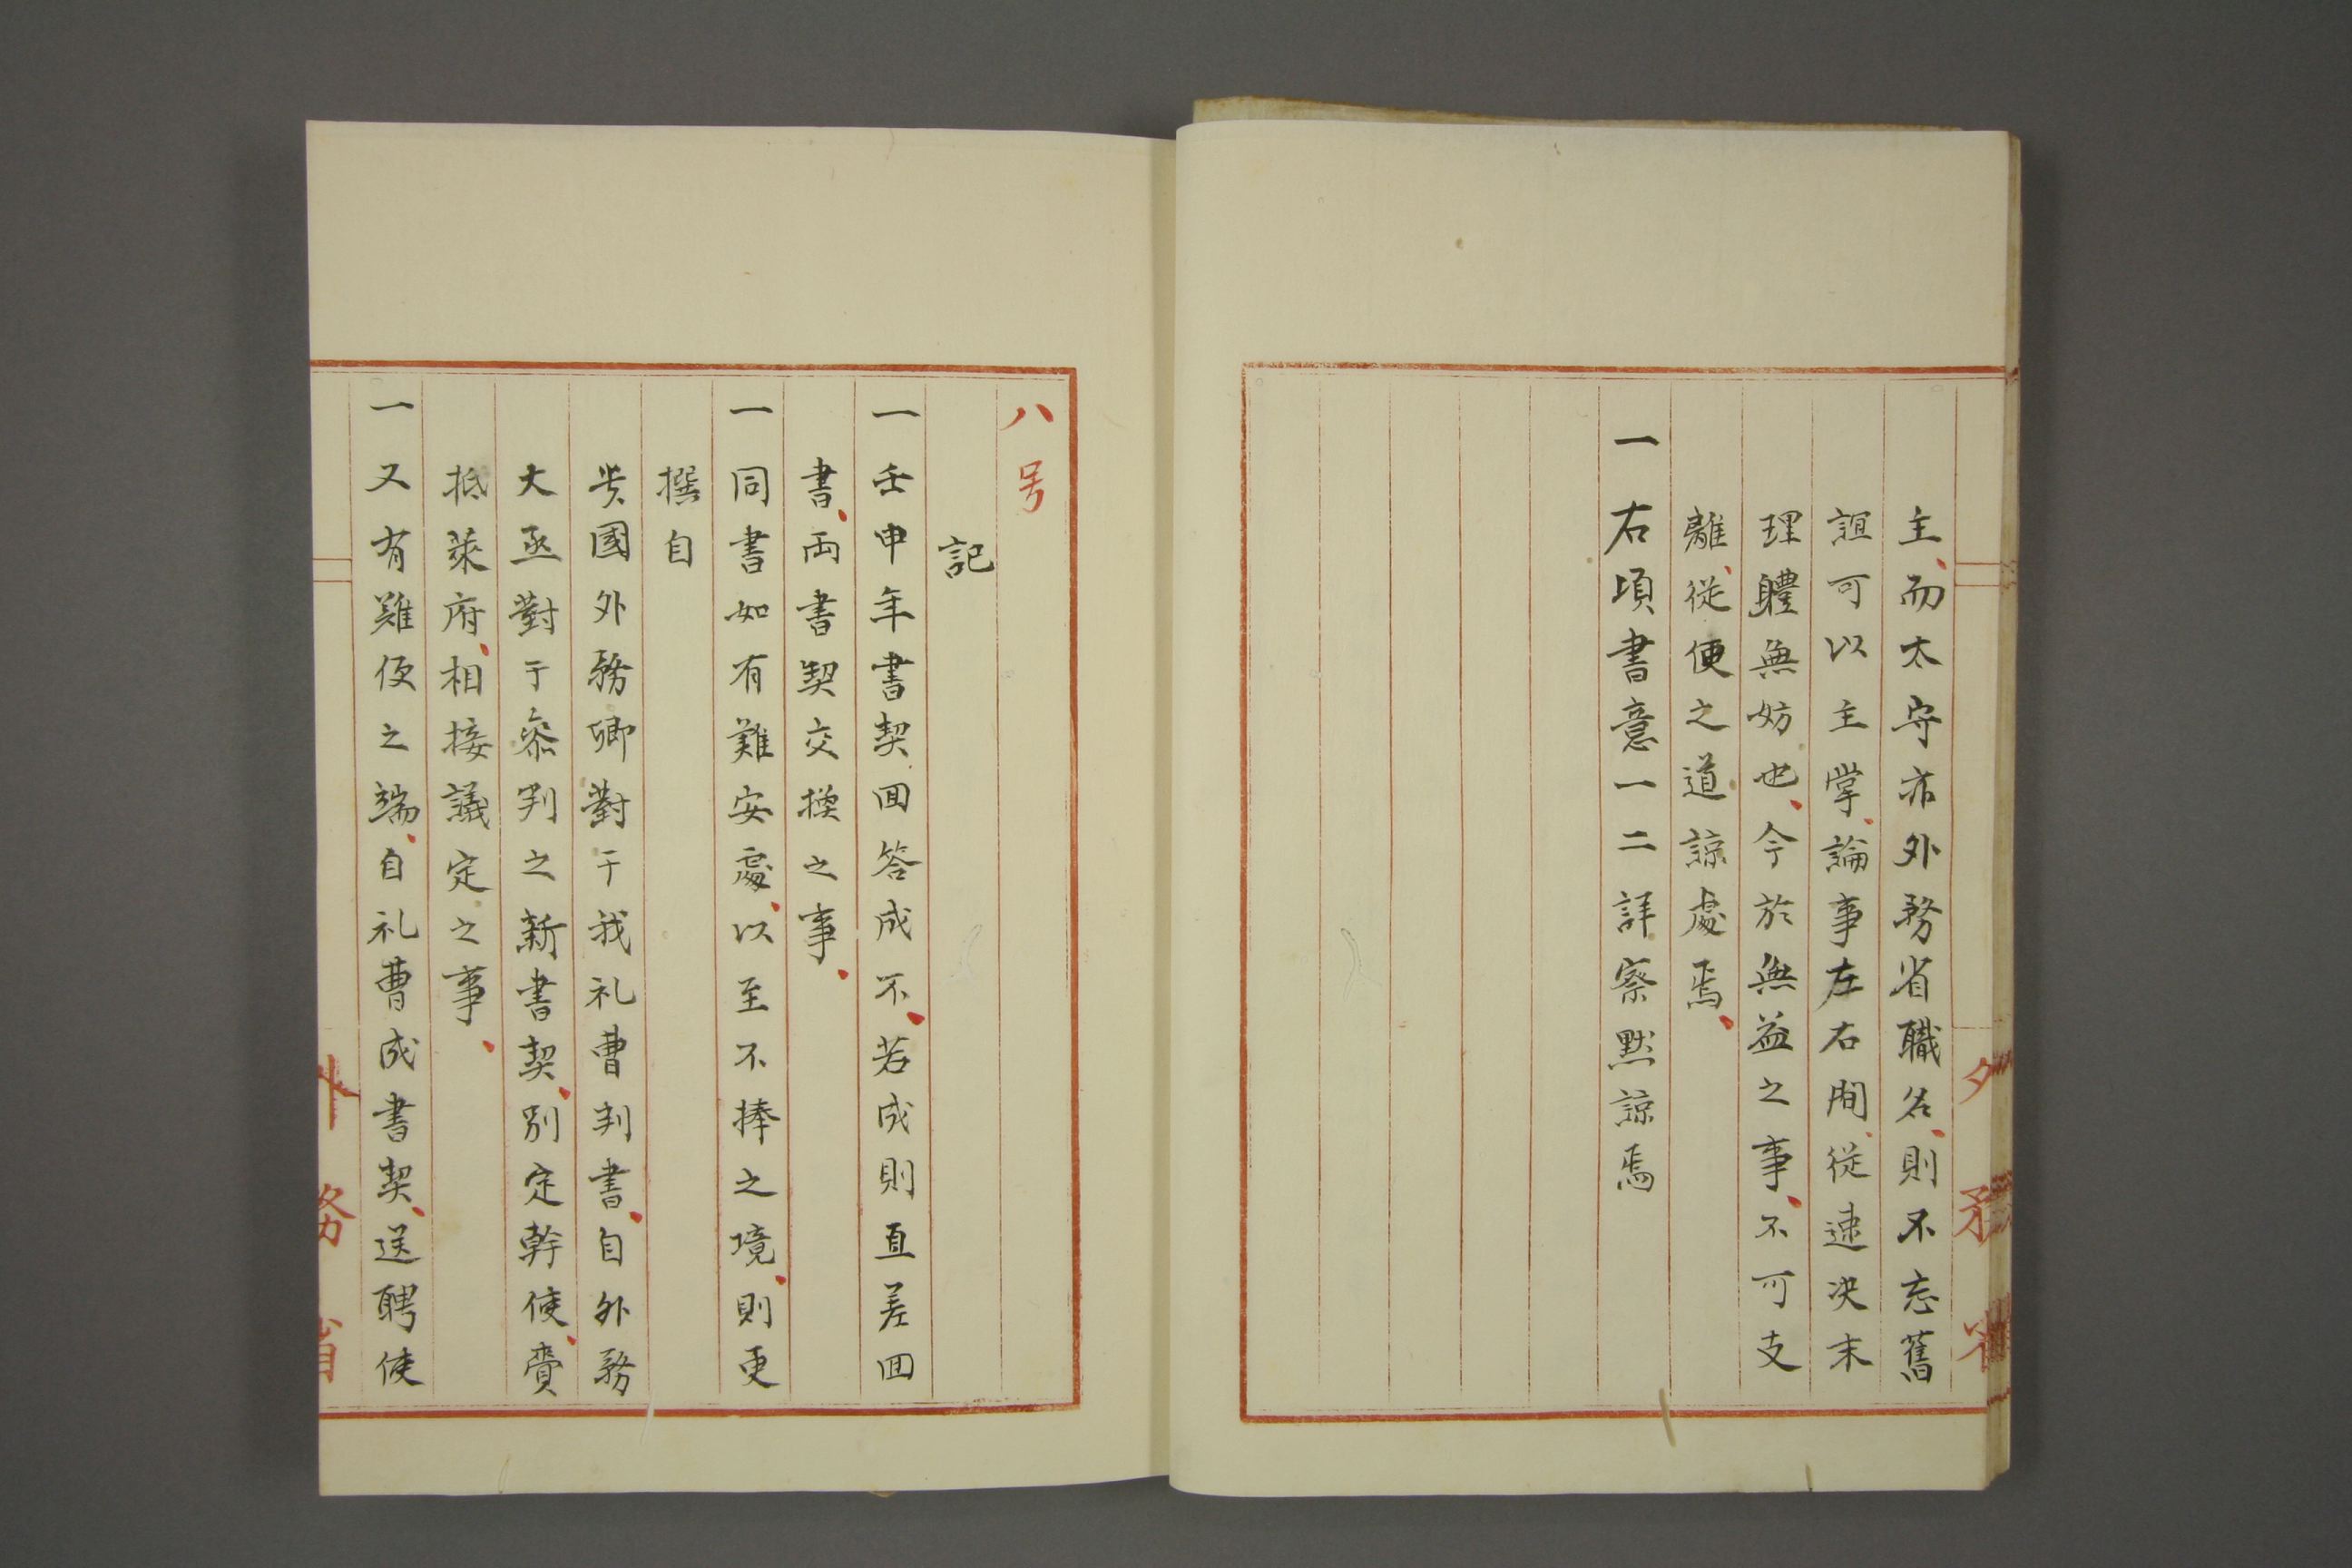 主、而太守亦外務省職名、則不忘舊
誼可以主掌、論事左右間、従速決末
理軆無妨也、今於無益之事、不可支
離、従便之道諒處焉、
一右項書意一二詳察黙諒焉
八号
記
一壬申年書契回答成不、若成則直差回
書、両書契交換之事、
一同書如有難安處、以至不捧之境、則更
撰自
貴國外務卿對于我礼曹判書、自外務
大丞對于叅判之新書契、別定幹使、賫
抵萊府、相接議定之事、
一又有難便之端、自礼曹成書契、送聘使
外務省